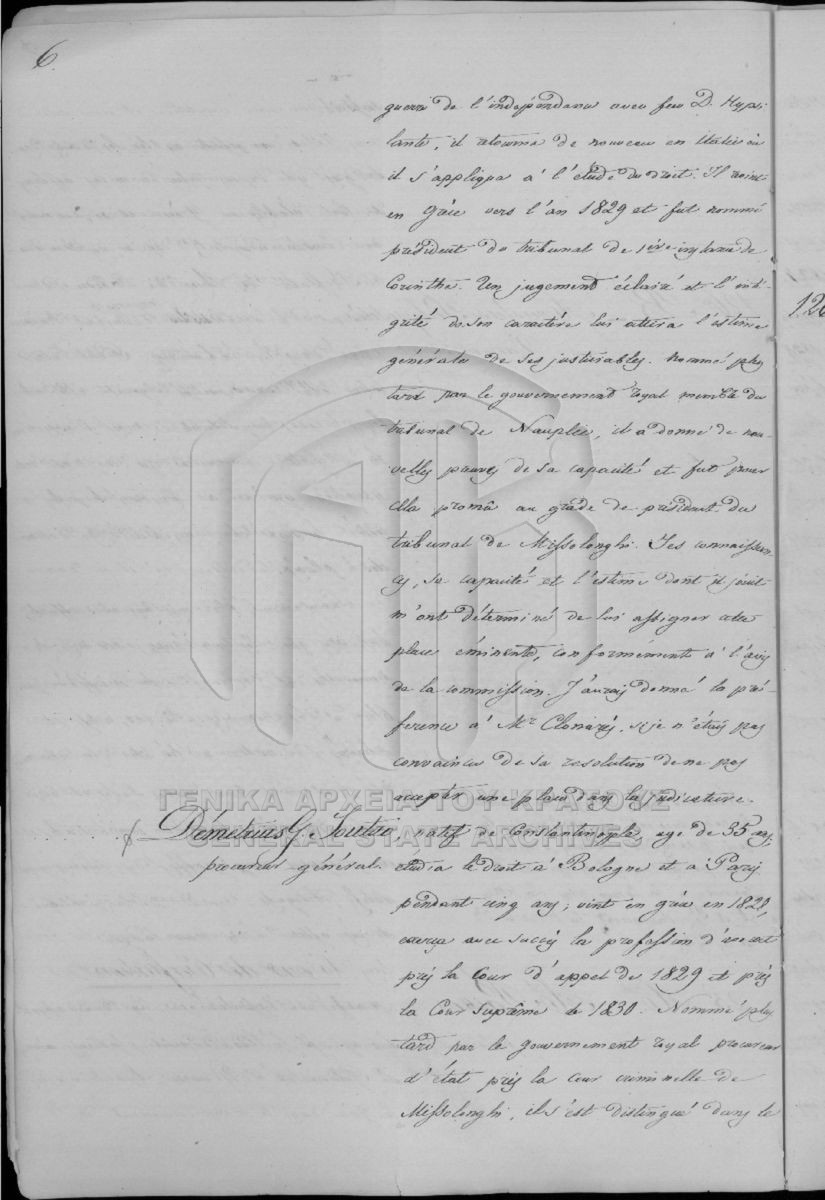 6.
guerre de l'indépendance avec feu D. Hypsi-
lante, il retourna de nouveau en Italie où
il s'appliqua à l'étude du droit. Il revint
en Grèce vers l'an 1829 et fut nommé
président du tribunal de 1ère instance de
Corinthe. Un jugement éclairé et l'inté-
grité de son caractère lui attira l'estime
générale de ses justiciables. Nommé plus
tard par le gouvernement royal membre du
tribunal de Nauplie, il a donné de nou-
velles preuves de sa capacité et fut pour
cela promû au grade de président du
tribunal de Missolonghi. Ses connaissan-
ces, sa capacité et l'estime dont il jouit
m'ont déterminé de lui assigner cette
place éminente, conformement à l'avis
de la commission. J'aurais donné la pré-
ference à Mr Clonarès, si je n'étais pas
convaincu de sa resolution de ne pas
accepter une place dans la judicature.
ΓΕΝΙΚΑ ΑΡΧΕΙΑ ΤΟΥ ΚΡΑΤΟΥΣ
GENERAL STATE ARCHIVES
Démetrius G. Soutzo, natif de Constantinople age de 35 ans,
procureur général. etudia le droit à Bologne et à Paris
pendant cinq ans; vint en Grèce en 1828,
exerça avec succès la profession d'avocat
près la Cour d'appel de 1829 et près
la Cour suprême de 1830. Nommé plus
tard par le gouvernement royal procureur
d'état près la cour criminelle de
Missolonghi, il s'est distingué dans le